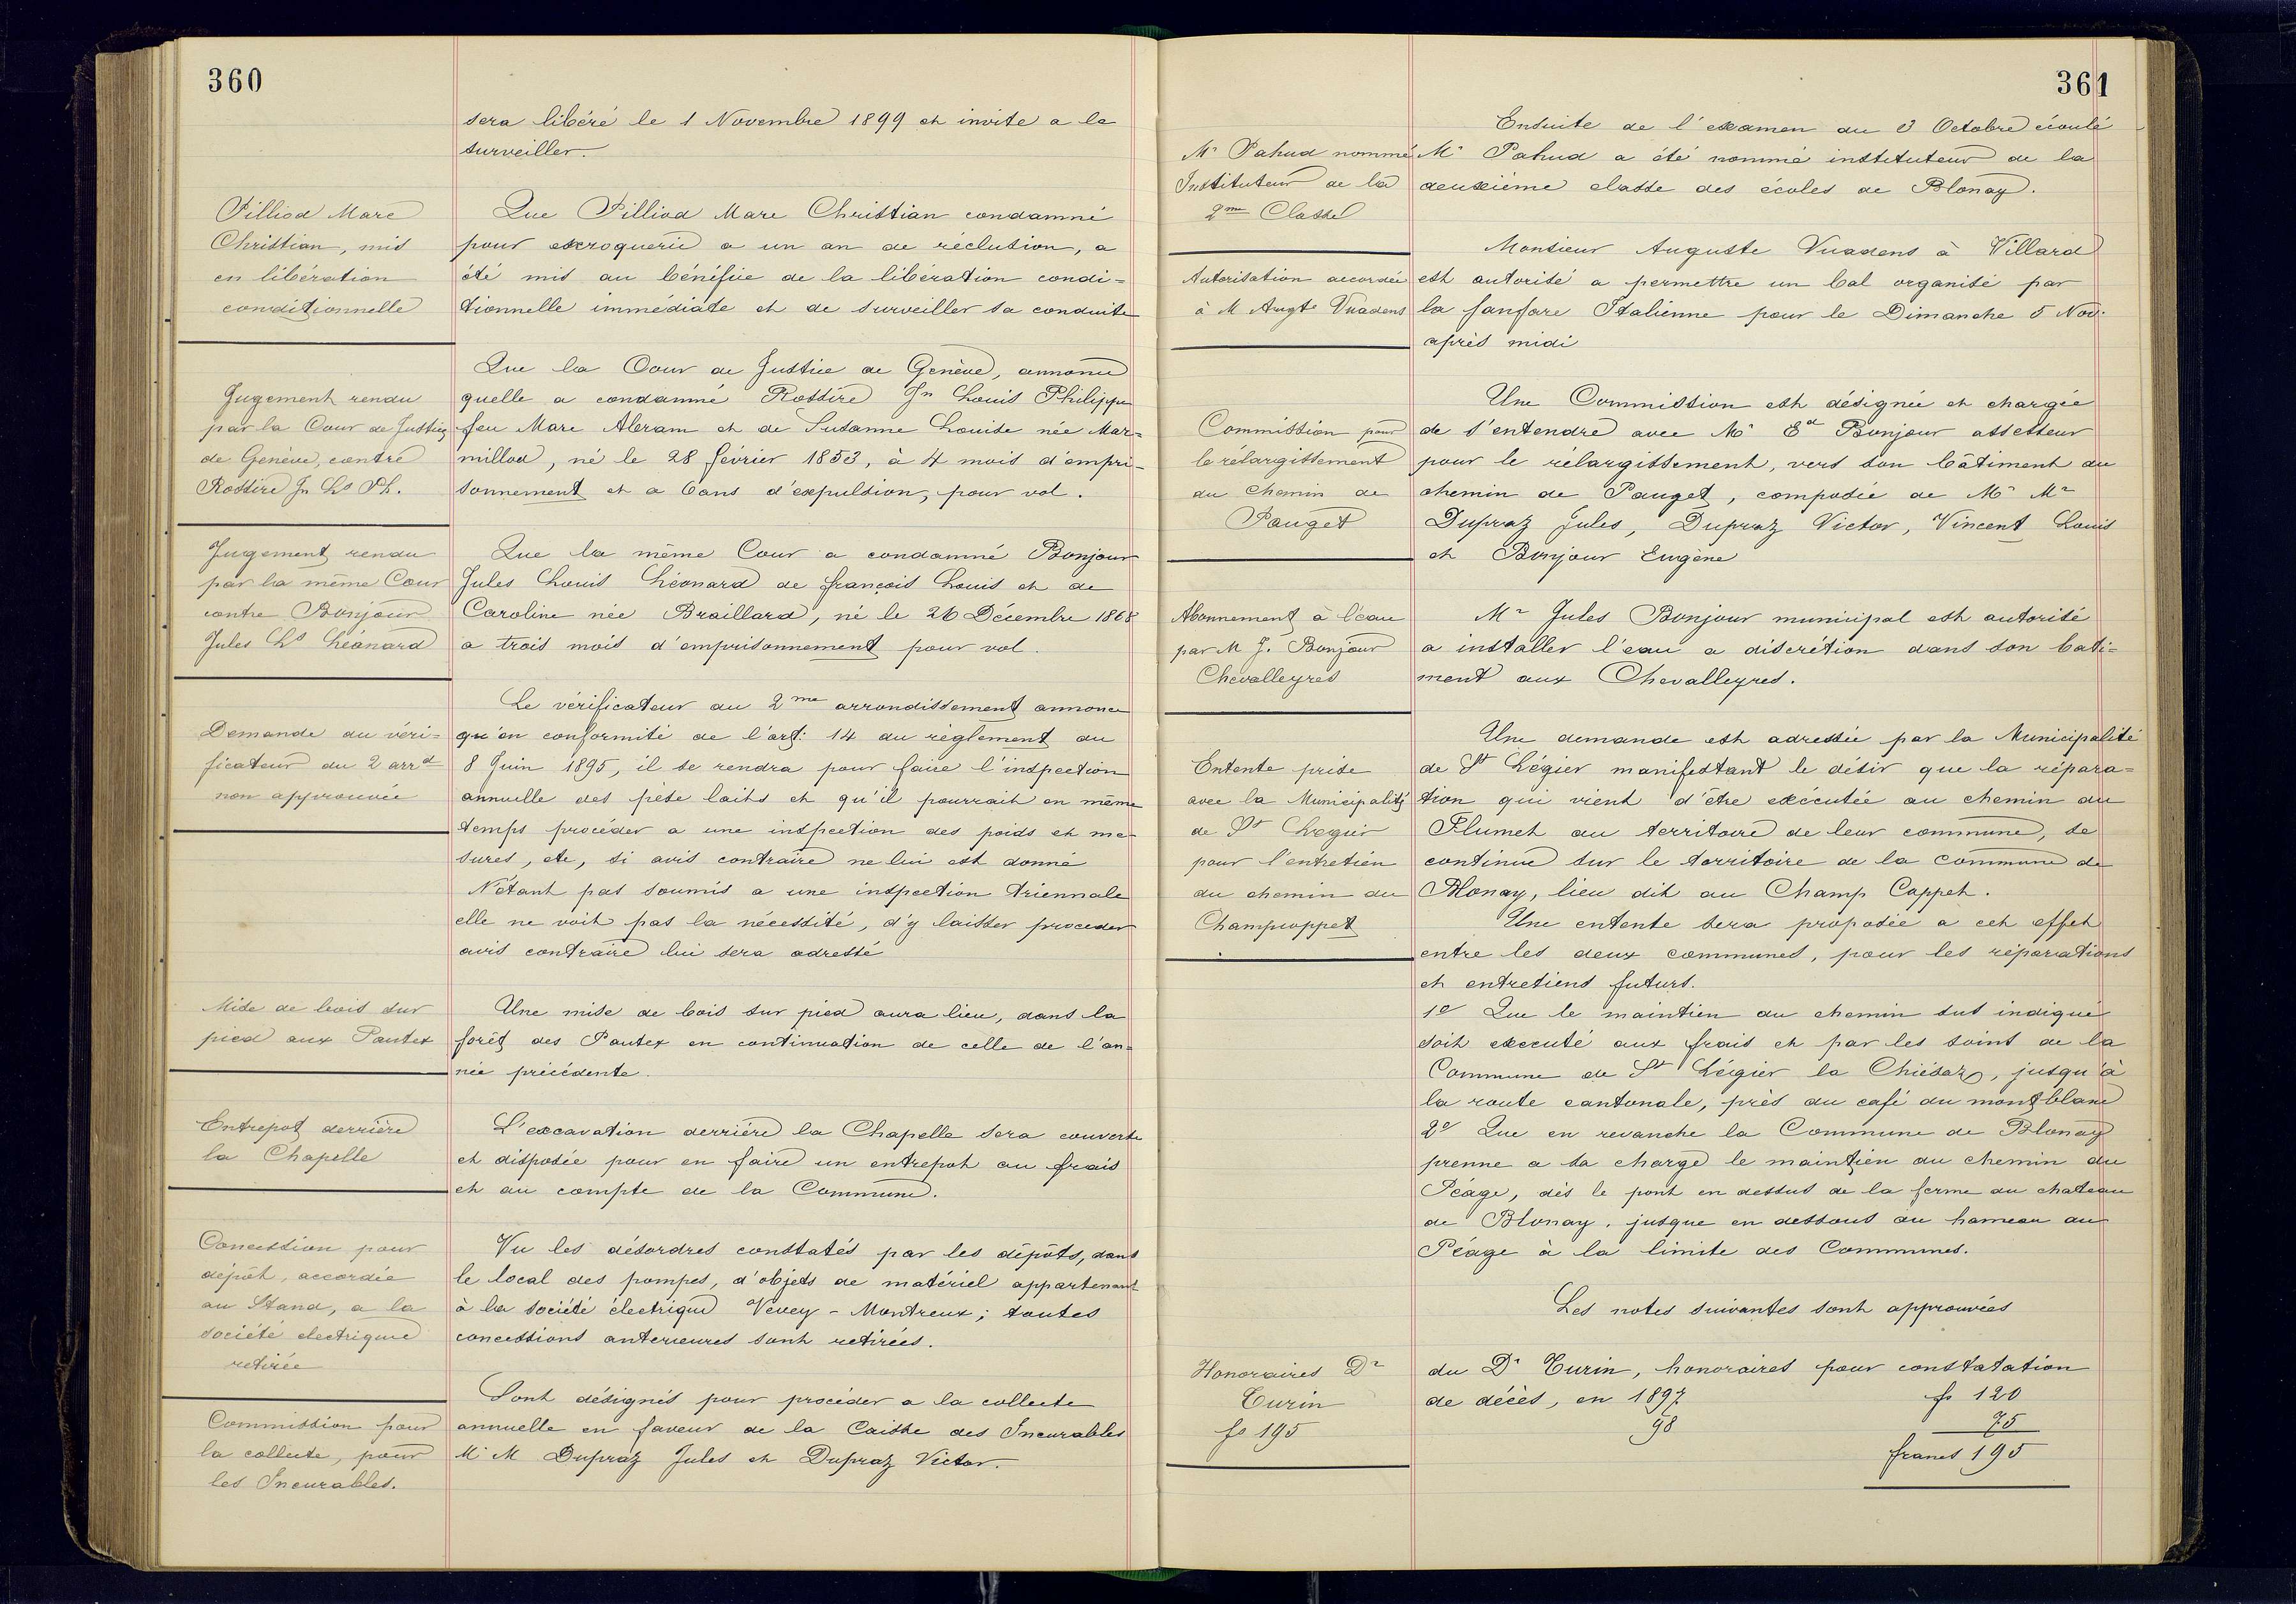 360
sera libéré le 1 Novembre 1899 et invite a le
surveiller.
Pilliod Marc
Christian, mis
en libération
conditionnelle
Que Pilliod Marc Christian condamné
pour escroquerie a un an de réclusion, a
été mis au bénéfice de la libération condi=
tionnelle immédiate et de surveiller sa conduite
Jugement rendu
par la Cour de Justice
de Genève, contre
Rossire Jn Ls Ph.
Que la Cour de Justice de Genève, annonce
quelle a condamné Rossire Jn Louis Philippe
feu Marc Abram et de Susanne Louise née Mar=
millod, né le 28 février 1853, à 4 mois d'empri-
sonnement et a 6 ans d'expulsion, pour vol.
Jugement rendu
par la même Cour
contre Bonjour
Jules Ls Léonard
Que la même Cour a condamné Bonjour
Jules Louis Léonard de françois Louis et de
Caroline née Braillard, né le 26 Décembre 1868
a trois mois d'emprisonnement pour vol.
Demande du véri=
ficateur du 2 arrd
non approuvée
Le vérificateur du 2me arrondissement annonce
qu'en conformité de l'art: 14 du règlement du
8 Juin 1895, il se rendra pour faire l'inspection
annuelle des pèse laits et qu'il pourrait en même
temps procéder a une inspection des poids et me-
sures, etc, si avis contraire ne lui est donné
N'étant pas soumis a une inspection triennale
elle ne voit pas la nécessité, d'y laisser proceder
avis contraire lui sera adressé
Mise de bois sur
pied aux Pautex
Une mise de bois sur pied aura lieu, dans la
forêt des Pautex en continuation de celle de l'an=
née précédente.
Entrepot derrière
la Chapelle
L'excavation derrière la Chapelle sera couverte
et disposée pour en faire un entrepot au frais
et au compte de la Commune.
Concession pour
dépôt, accordée
au Stand, a la
société electrique
retirée
Vu les désordres constatés par les dépôts, dans
le local des pompes, d'objets de matériel appartenant
à la société électrique Vevey - Montreux; toutes
concessions anterieures sont retirées.
Commission pour
la collecte, pour
les Incurables.
Sont désignés pour procéder a la collecte
annuelle en faveur de la Caisse des Incurables
M. M Dupraz Jules et Dupraz Victor.
361
Mr Pahud nommé
Instituteur de la
2me Classe
Ensuite de l'examen du 3 Octobre écoulé
Mr Pahud a été nommé instituteur de la
deuxième classe des écoles de Blonay.
Autorisation accordée
à M Augte Vuadens
Monsieur Auguste Vuadens à Villard
est autorisé a permettre un bal organisé par
la fanfare Italienne pour le Dimanche 5 Nov.
après midi
Commission pour
le rélargissement
du chemin de
Pauget
Une Commission est désignée et chargée
de s'entendre avec Mr Ed Bonjour assesseur
pour le rélargissement, vers son bâtiment du
chemin de Pauget, composée de Mr Mr
Dupraz Jules, Dupraz Victor, Vincent Louis
et Bonjour Eugène
Abonnement à l'eau
par M J. Bonjour
Chevalleyres
Mr Jules Bonjour municipal est autorisé
a installer l'eau a discrétion dans son bati=
ment aux Chevalleyres.
Entente prise
avec la Municipalité
de St Legier
pour l'entretien
du chemin du
Champcoppet
Une demande est adressée par la Municipalité
de St Légier manifestant le désir que la répara=
tion qui vient d'être exécutée au chemin du
Plumet au territoire de leur commune, se
continue sur le territoire de la commune de
Blonay, lieu dit au Champ Coppet.
Une entente sera proposée a cet effet
entre les deux communes, pour les réparations
et entretiens futurs.
1e Que le maintien du chemin sus indiqué
soit executé aux frais et par les soins de la
Commune de St Légier la Chiésaz, jusqu'à
la route cantonale, près du café du montblanc
2e Que en revanche la Commune de Blonay
prenne a sa charge le maintien du chemin du
Péage, dés le pont en dessus de la ferme du chateau
de Blonay, jusque en dessous du hameau du
Péage à la limite des Communes.
Les notes suivantes sont approuvées
Honoraires Dr
Turin
fs 195
du Dr Turin, honoraires pour constatation
de décès, en 1897 fs 120
98 75
francs 195